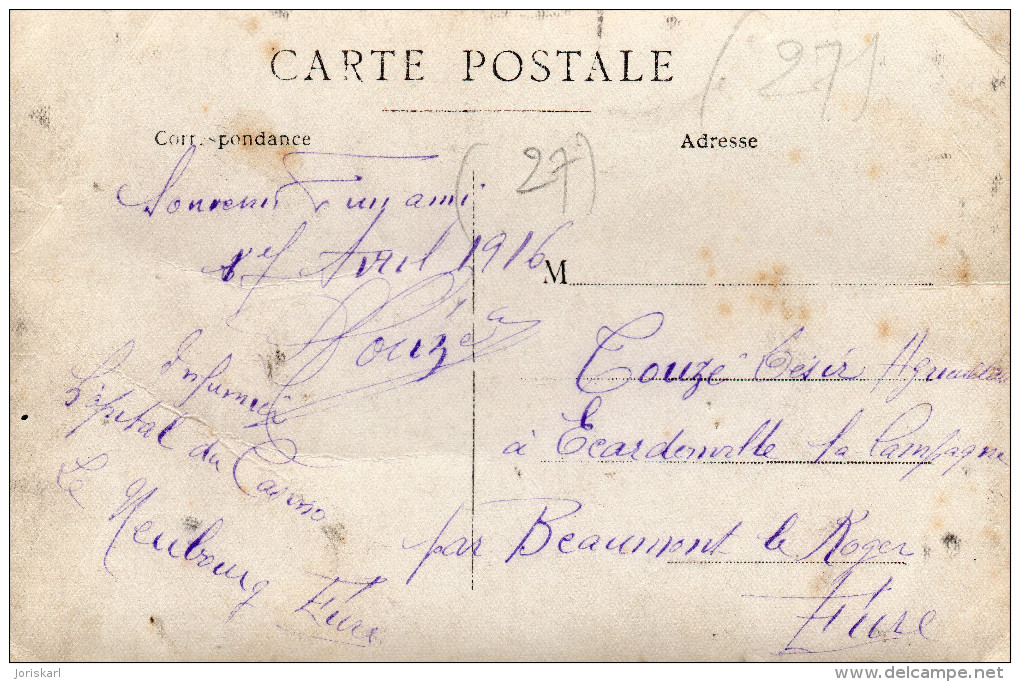 CARTE POSTALE
(27)
Correspondance
Adresse
(27)
Souvenir d'un ami
1er Avril 1916
M
Couzé
Infirmier
Hôpital du Casino
Le Neubourg
Eure
Couzé Césir
à Ecardenville la Campagne
par Beaumont le Roger
Eure
joriskarl
www.delcampe.net